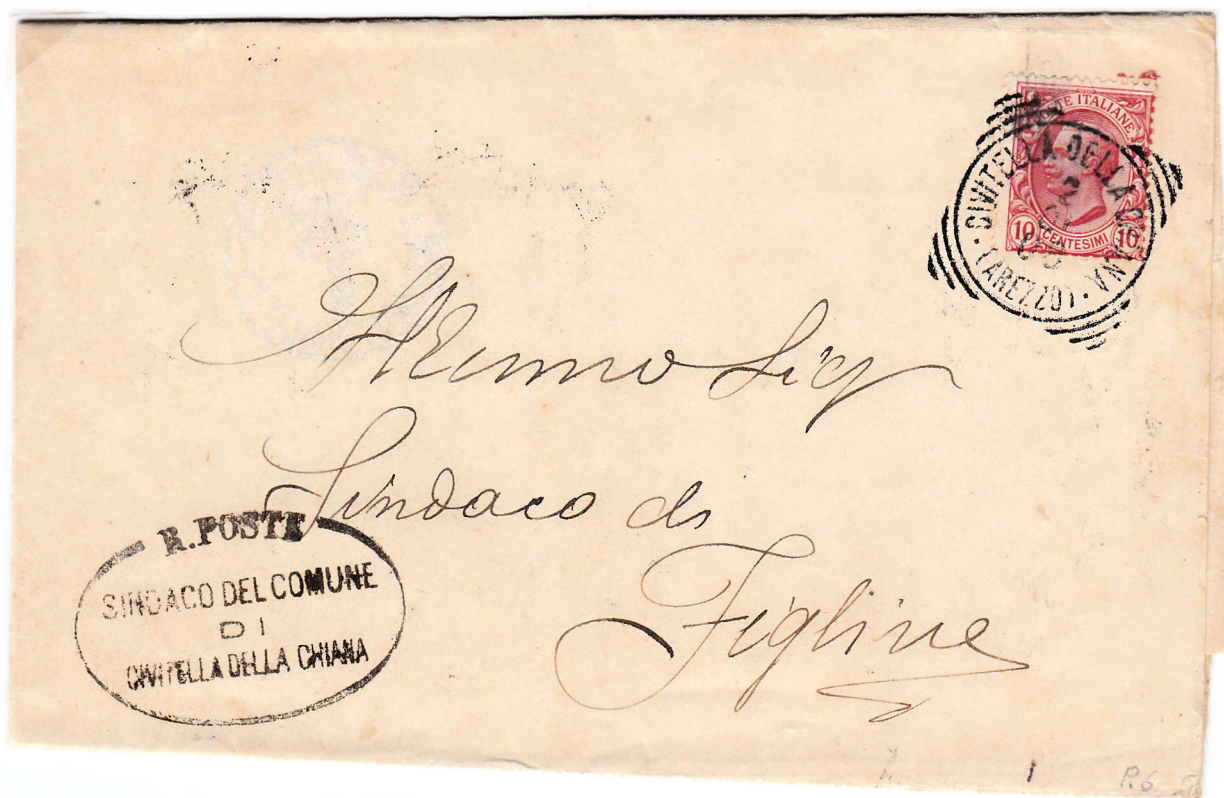 POSTE ITALIANE
10 CENTESIMI 10
CIVITELLA DELLA CHIANA
(AREZZO)
Ill.mo Sig
Sindaco di
Figline
R. POSTE
SINDACO DEL COMUNE
DI
CIVITELLA DELLA CHIANA
R6